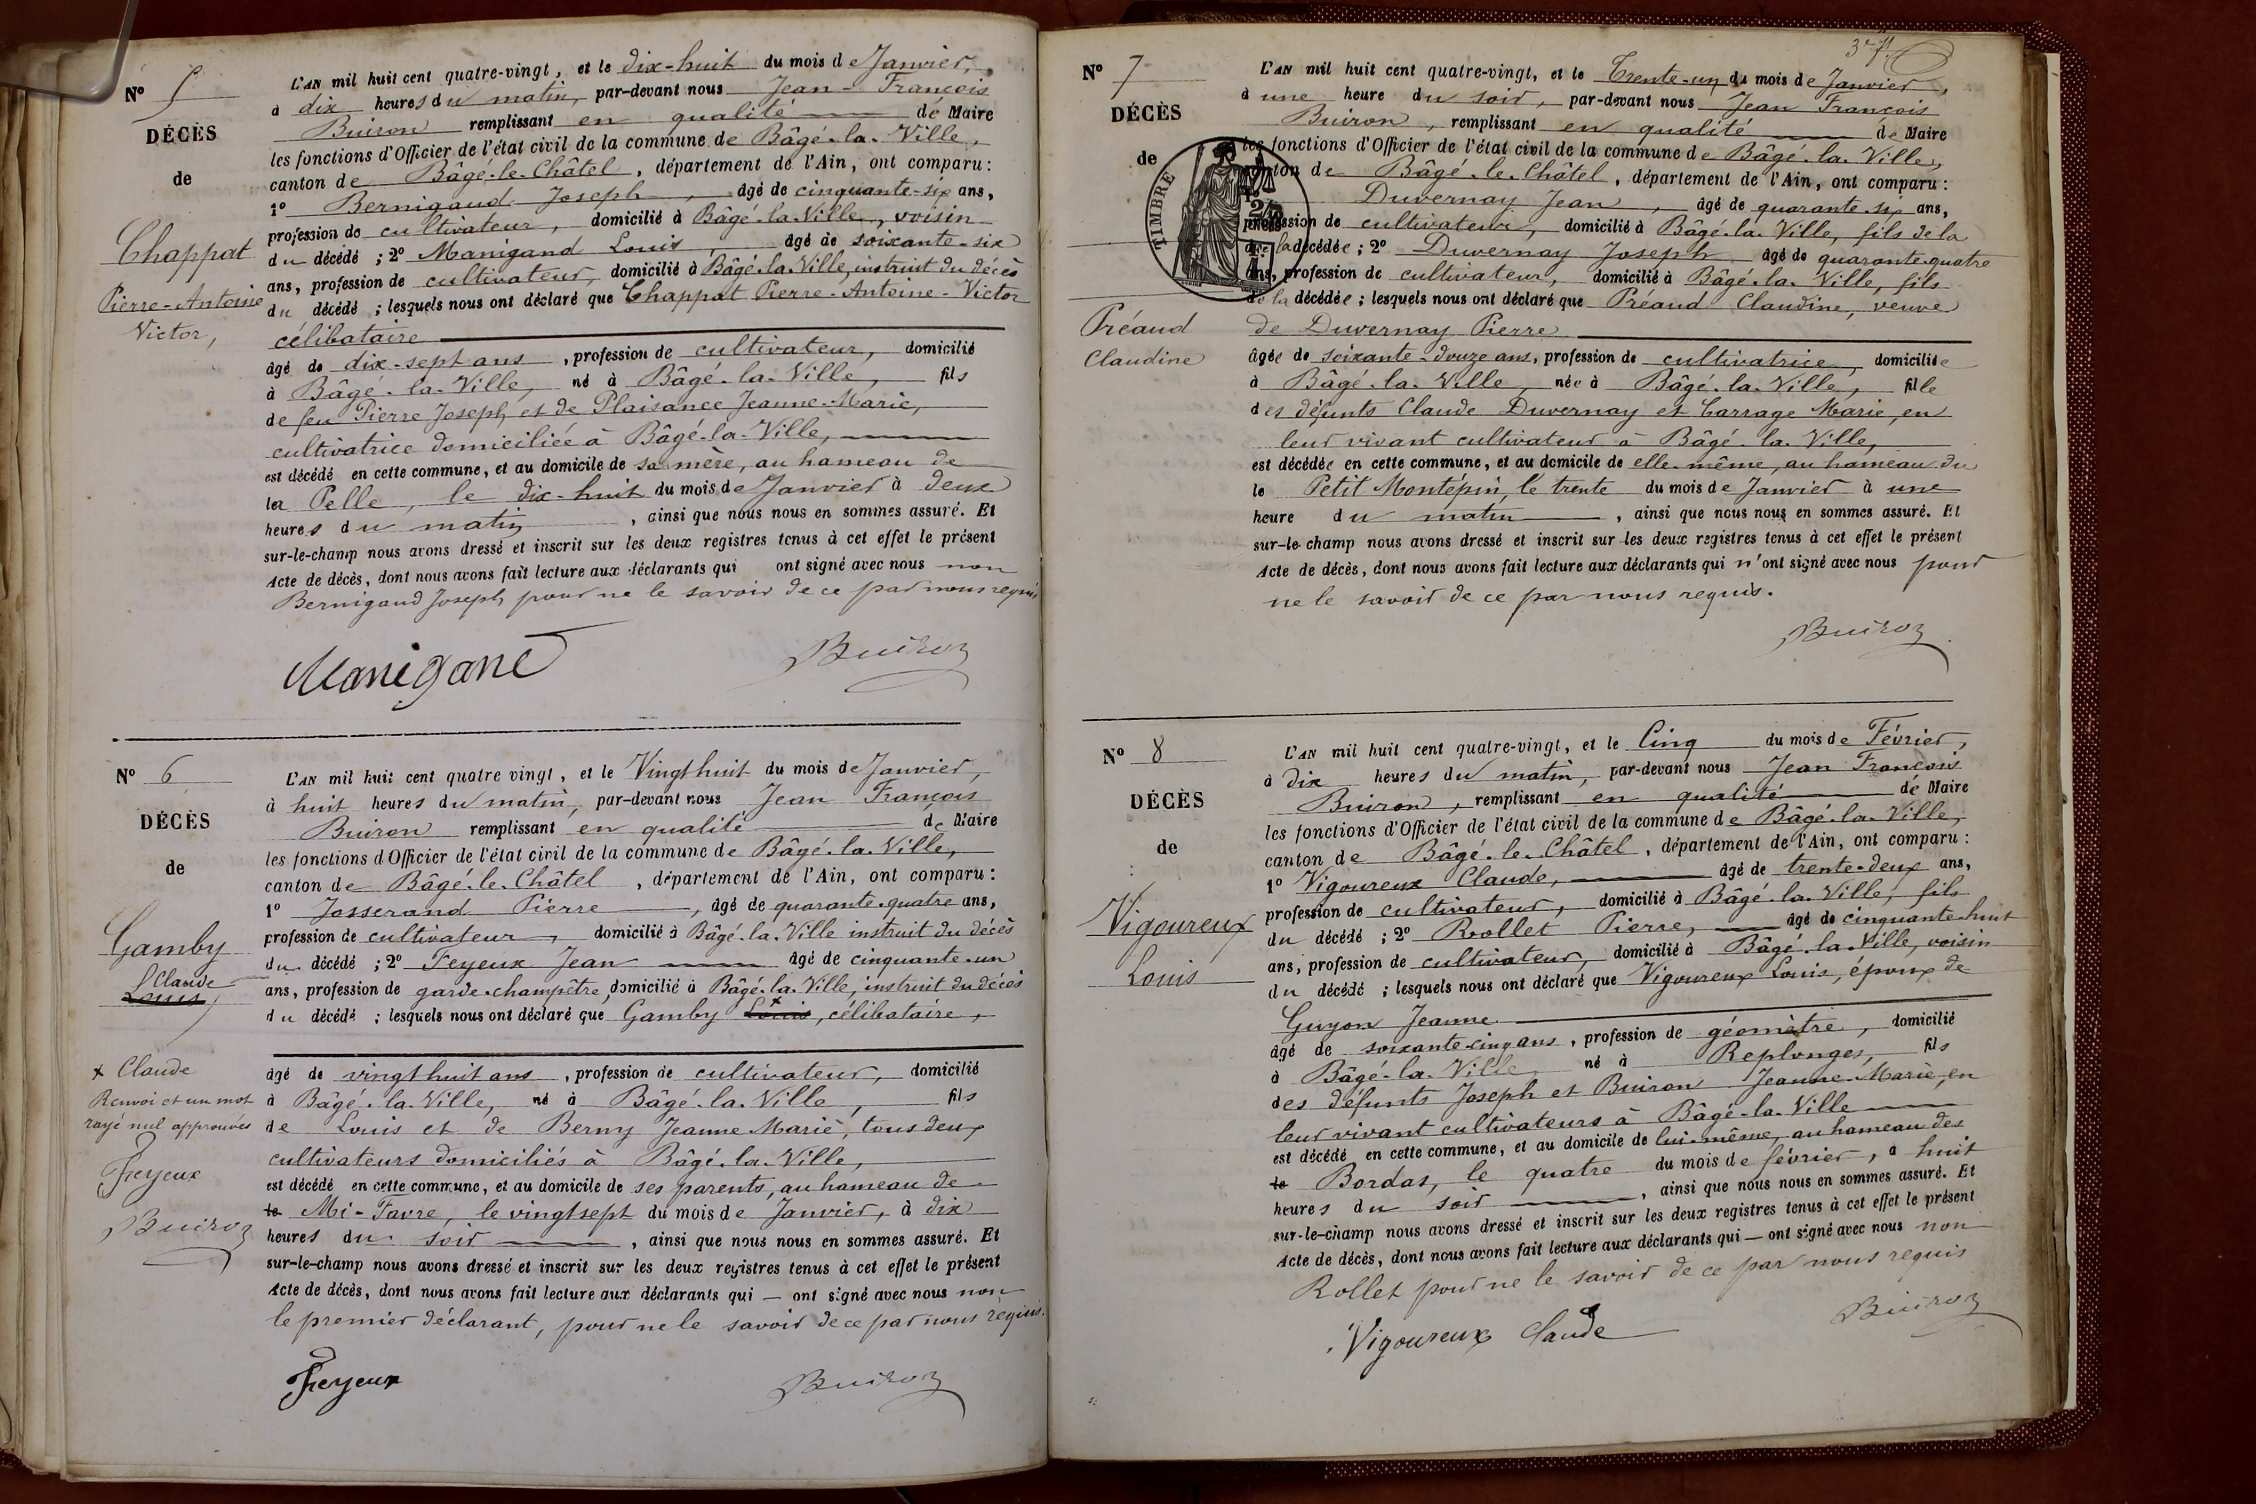 Nº 5
DÉCÈS
de
Chappat
Pierre-Antoine
Victor,
L'AN mil huit cent quatre-vingt, et le dix-huit du mois de Janvier,
à dix heures du matin, par-devant nous Jean-François
Buiron remplissant en qualité de Maire
les fonctions d'Officier de l'état civil de la commune de Bâgé-la-Ville,
canton de Bâgé-le-Châtel, département de l'Ain, ont comparu:
1º Bernigaud Joseph, âgé de cinquante-six ans,
profession de cultivateur, domicilié à Bâgé-la-Ville, voisin
du décédé ; 2º Manigand Louis, âgé de soixante-six
ans, profession de cultivateur, domicilié à Bâgé-la-Ville, instruit du décès
du décédé ; lesquels nous ont déclaré que Chappat Pierre-Antoine-Victor
célibataire
âgé de dix-sept ans, profession de cultivateur, domicilié
à Bâgé-la-Ville, né à Bâgé-la-Ville, fils
de feu Pierre Joseph et de Plaisance Jeanne-Marie,
cultivatrice domiciliée à Bâgé-la-Ville,
est décédé en cette commune, et au domicile de sa mère, au hameau de
la Pelle, le dix-huit du mois de Janvier à deux
heures du matin, ainsi que nous nous en sommes assuré. Et
sur-le-champ nous avons dressé et inscrit sur les deux registres tenus à cet effet le présent
Acte de décès, dont nous avons fait lecture aux déclarants qui ont signé avec nous non
Bernigaud Joseph pour ne le savoir de ce par nous requis
Manigand
Buiron
Nº 6
DÉCÈS
de
Gamby
Claude
Louis,
x Claude
Renvoi et un mot
rayé nul approuvés
Feyeux
Buiron
L'AN mil huit cent quatre vingt, et le Vingt huit du mois de Janvier,
à huit heures du matin, par-devant nous Jean François
Buiron remplissant en qualité de Maire
les fonctions d'Officier de l'état civil de la commune de Bâgé-la-Ville,
canton de Bâgé-le-Châtel, département de l'Ain, ont comparu:
1º Josserand Pierre, âgé de quarante-quatre ans,
profession de cultivateur, domicilié à Bâgé-la-Ville instruit du décès
du décédé ; 2º Feyeux Jean âgé de cinquante-un
ans, profession de garde-champêtre, domicilié à Bâgé-la-Ville, instruit du décès
du décédé ; lesquels nous ont déclaré que Gamby Louis x, célibataire,
âgé de vingt huit ans, profession de cultivateur, domicilié
à Bâgé-la-Ville, né à Bâgé-la-Ville, fils
de Louis et de Berny Jeanne Marie, tous deux
cultivateurs domiciliés à Bâgé-la-Ville,
est décédé en cette commune, et au domicile de ses parents, au hameau de
le Mi-Favre, le vingt sept du mois de Janvier, à dix
heures du soir, ainsi que nous nous en sommes assuré. Et
sur-le-champ nous avons dressé et inscrit sur les deux registres tenus à cet effet le présent
Acte de décès, dont nous avons fait lecture aux déclarants qui — ont signé avec nous non
le premier déclarant, pour ne le savoir de ce par nous requis.
Feyeux
Buiron
Nº 7
DÉCÈS
de
TIMBRE
Préaud
Claudine
L'AN mil huit cent quatre-vingt, et le Trente-un du mois de Janvier,
à une heure du soir, par-devant nous Jean François
Buiron, remplissant en qualité de Maire
les fonctions d'Officier de l'état civil de la commune de Bâgé-la-Ville,
canton de Bâgé-le-Châtel, département de l'Ain, ont comparu:
Duvernay Jean, âgé de quarante-six ans,
profession de cultivateur, domicilié à Bâgé-la-Ville, fils de la
décédée ; 2º Duvernay Joseph âgé de quarante-quatre
ans, profession de cultivateur, domicilié à Bâgé-la-Ville, fils
de la décédée ; lesquels nous ont déclaré que Préaud Claudine, veuve
de Duvernay Pierre
âgée de soixante-douze ans, profession de cultivatrice, domiciliée
à Bâgé-la-Ville, née à Bâgé-la-Ville, fille
des défunts Claude Duvernay et Carrage Marie, en
leur vivant cultivateur à Bâgé-la-Ville,
est décédée en cette commune, et au domicile de elle-même, au hameau du
le Petit Montépin, le trente du mois de Janvier à une
heure du matin, ainsi que nous nous en sommes assuré. Et
sur-le-champ nous avons dressé et inscrit sur les deux registres tenus à cet effet le présent
Acte de décès, dont nous avons fait lecture aux déclarants qui n'ont signé avec nous pour
ne le savoir de ce par nous requis.
Buiron
Nº 8
DÉCÈS
de
Vigoureux
Louis
L'AN mil huit cent quatre-vingt, et le Cinq du mois de Février,
à dix heures du matin, par-devant nous Jean François
Buiron, remplissant en qualité de Maire
les fonctions d'Officier de l'état civil de la commune de Bâgé-la-Ville,
canton de Bâgé-le-Châtel, département de l'Ain, ont comparu:
1º Vigoureux Claude, âgé de trente-deux ans,
profession de cultivateur, domicilié à Bâgé-la-Ville, fils
du décédé ; 2º Rollet Pierre, âgé de cinquante-huit
ans, profession de cultivateur, domicilié à Bâgé-la-Ville, voisin
du décédé ; lesquels nous ont déclaré que Vigoureux Louis, époux de
Guyon Jeanne
âgé de soixante-cinq ans, profession de géomètre, domicilié
à Bâgé-la-Ville né à Replonges, fils
des défunts Joseph et Buiron Jeanne-Marie, en
leur vivant cultivateurs à Bâgé-la-Ville
est décédé en cette commune, et au domicile de lui-même, au hameau des
le Bordas, le quatre du mois de février, à huit
heures du soir, ainsi que nous nous en sommes assuré. Et
sur-le-champ nous avons dressé et inscrit sur les deux registres tenus à cet effet le présent
Acte de décès, dont nous avons fait lecture aux déclarants qui — ont signé avec nous non
Rollet pour ne le savoir de ce par nous requis
Vigoureux Claude
Buiron